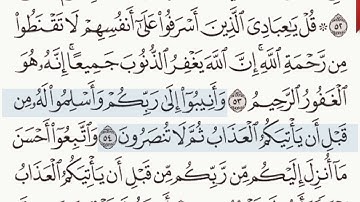 ٥٢ ۞ قُلْ يَٰعِبَادِيَ ٱلَّذِينَ أَسْرَفُوا۟ عَلَىٰٓ أَنفُسِهِمْ لَا تَقْنَطُوا۟
مِن رَّحْمَةِ ٱللَّهِ ۚ إِنَّ ٱللَّهَ يَغْفِرُ ٱلذُّنُوبَ جَمِيعًا ۚ إِنَّهُۥ هُوَ
ٱلْغَفُورُ ٱلرَّحِيمُ ٥٣ وَأَنِيبُوٓا۟ إِلَىٰ رَبِّكُمْ وَأَسْلِمُوا۟ لَهُۥ مِن
قَبْلِ أَن يَأْتِيَكُمُ ٱلْعَذَابُ ثُمَّ لَا تُنصَرُونَ ٥٤ وَٱتَّبِعُوٓا۟ أَحْسَنَ
مَآ أُنزِلَ إِلَيْكُم مِّن رَّبِّكُم مِّن قَبْلِ أَن يَأْتِيَكُمُ ٱلْعَذَابُ